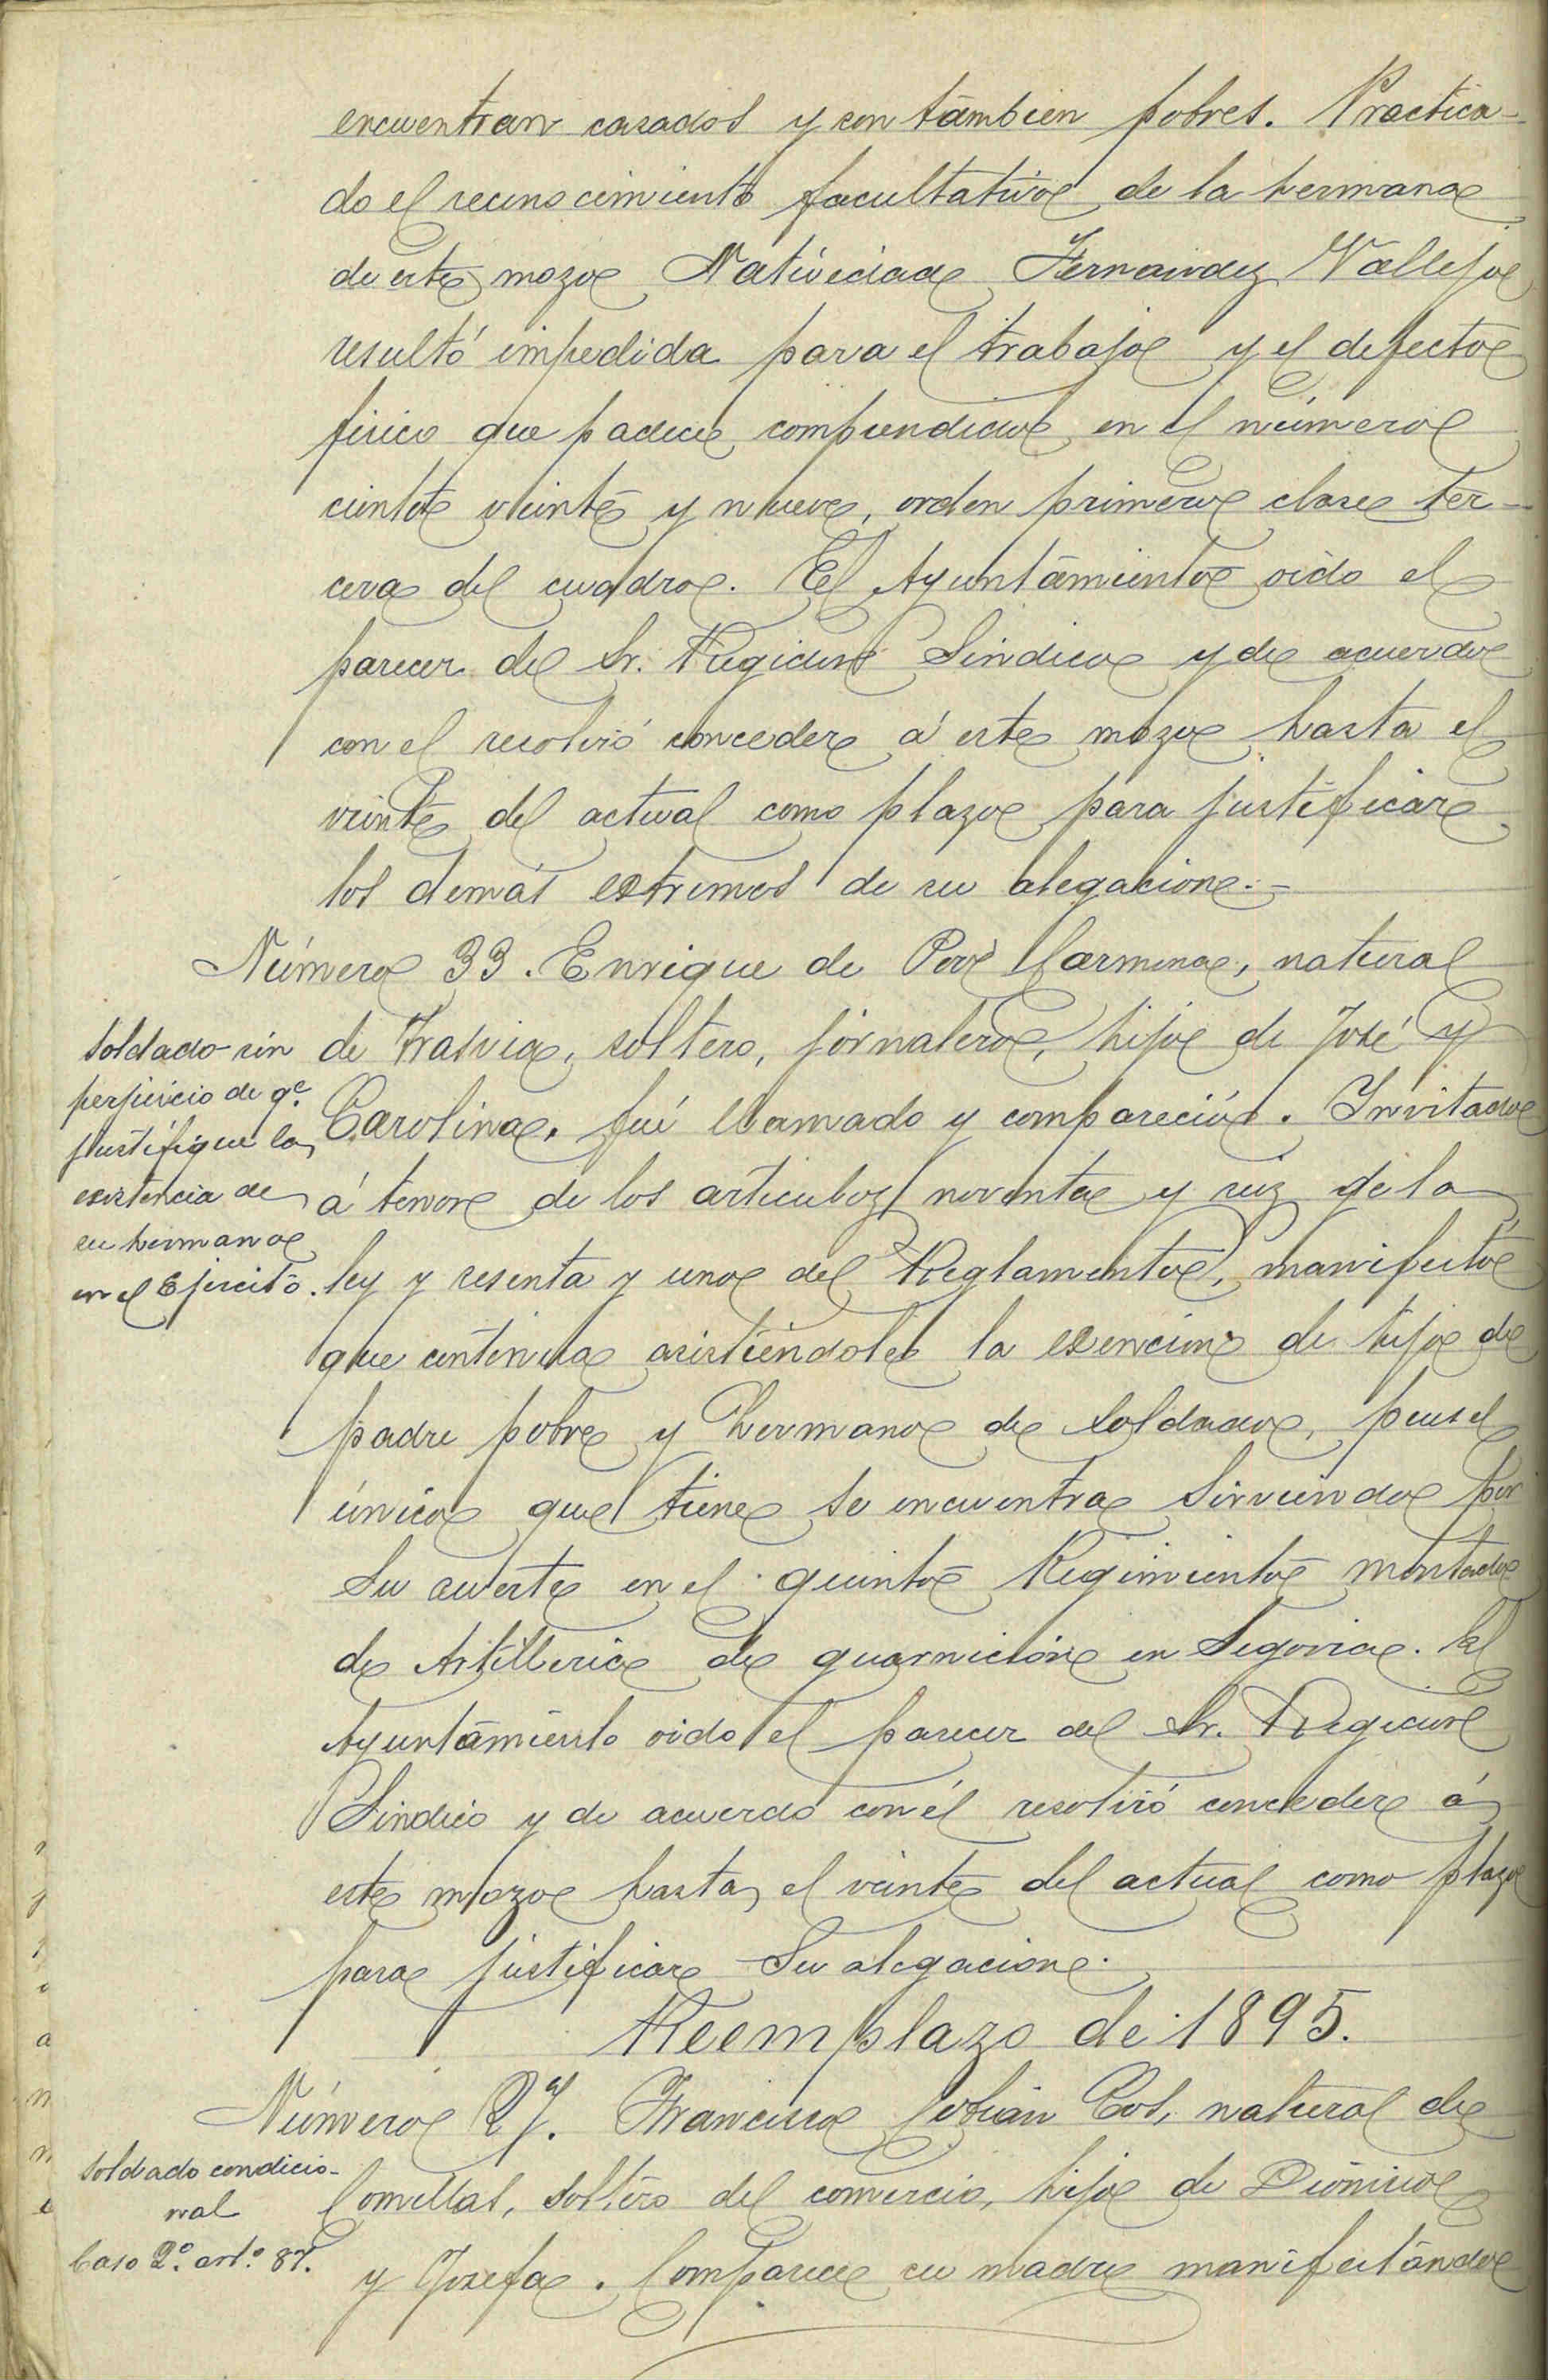 encuentran casados y son tambien pobres. Practica-
do el reconocimiento facultativo de la hermana
de este mozo Natividad Fernandez Vallejo
resultó impedida para el trabajo y el defecto
fisico que padece comprendido en el número
ciento veinte y nueve, orden primero clase ter-
cera del cuadro. El Ayuntamiento oido el
parecer del Sr. Regidor Sindico y de acuerdo
con el resolvió conceder á este mozo hasta el
veinte del actual como plazo para justificar
los demás estremos de su alegacion.-
Número 33. Enrique de Carmona, natural
de Trasvia, soltero, jornalero, hijo de José y
Carolina, fué llamado y compareció. Invitado
á tenor de los articulos noventa y seis de la
ley y sesenta y uno del Reglamento, manifestó
que continua asistiendole la exencion de hijo de
padre pobre y hermano de soldado, pues el
único que tiene se encuentra sirviendo por
su suerte en el quinto Regimiento montado
de Artilleria de guarnición en Segovia. El
Ayuntamiento oido el parecer del Sr. Regidor
Sindico y de acuerdo con él resolvió conceder á
este mozo hasta el veinte del actual como plazo
para justificar su alegacion.
soldado sin
perjuicio de qe.
justifique la
existencia de
su hermano
en el Ejército.
Reemplazo de 1895.
Número 27. Francisco Cos, natural de
Comillas, soltero del comercio, hijo de Dionisio
y Josefa. Comparece su madre manifestando
soldado condicio-
nal
Caso 2º. artº. 87.